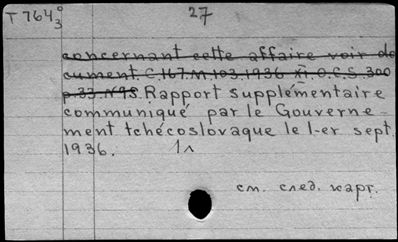 T 764 0/3 27
concernant cette affaire voir do
cument. C.167.M.103.1936 XI.O.C.S.300
p.33. N98. Rapport supplémentaire
communiqué par le Gouverne-
ment tchécoslovaque le 1-er sept.
1936. 1л
см. след. карт.